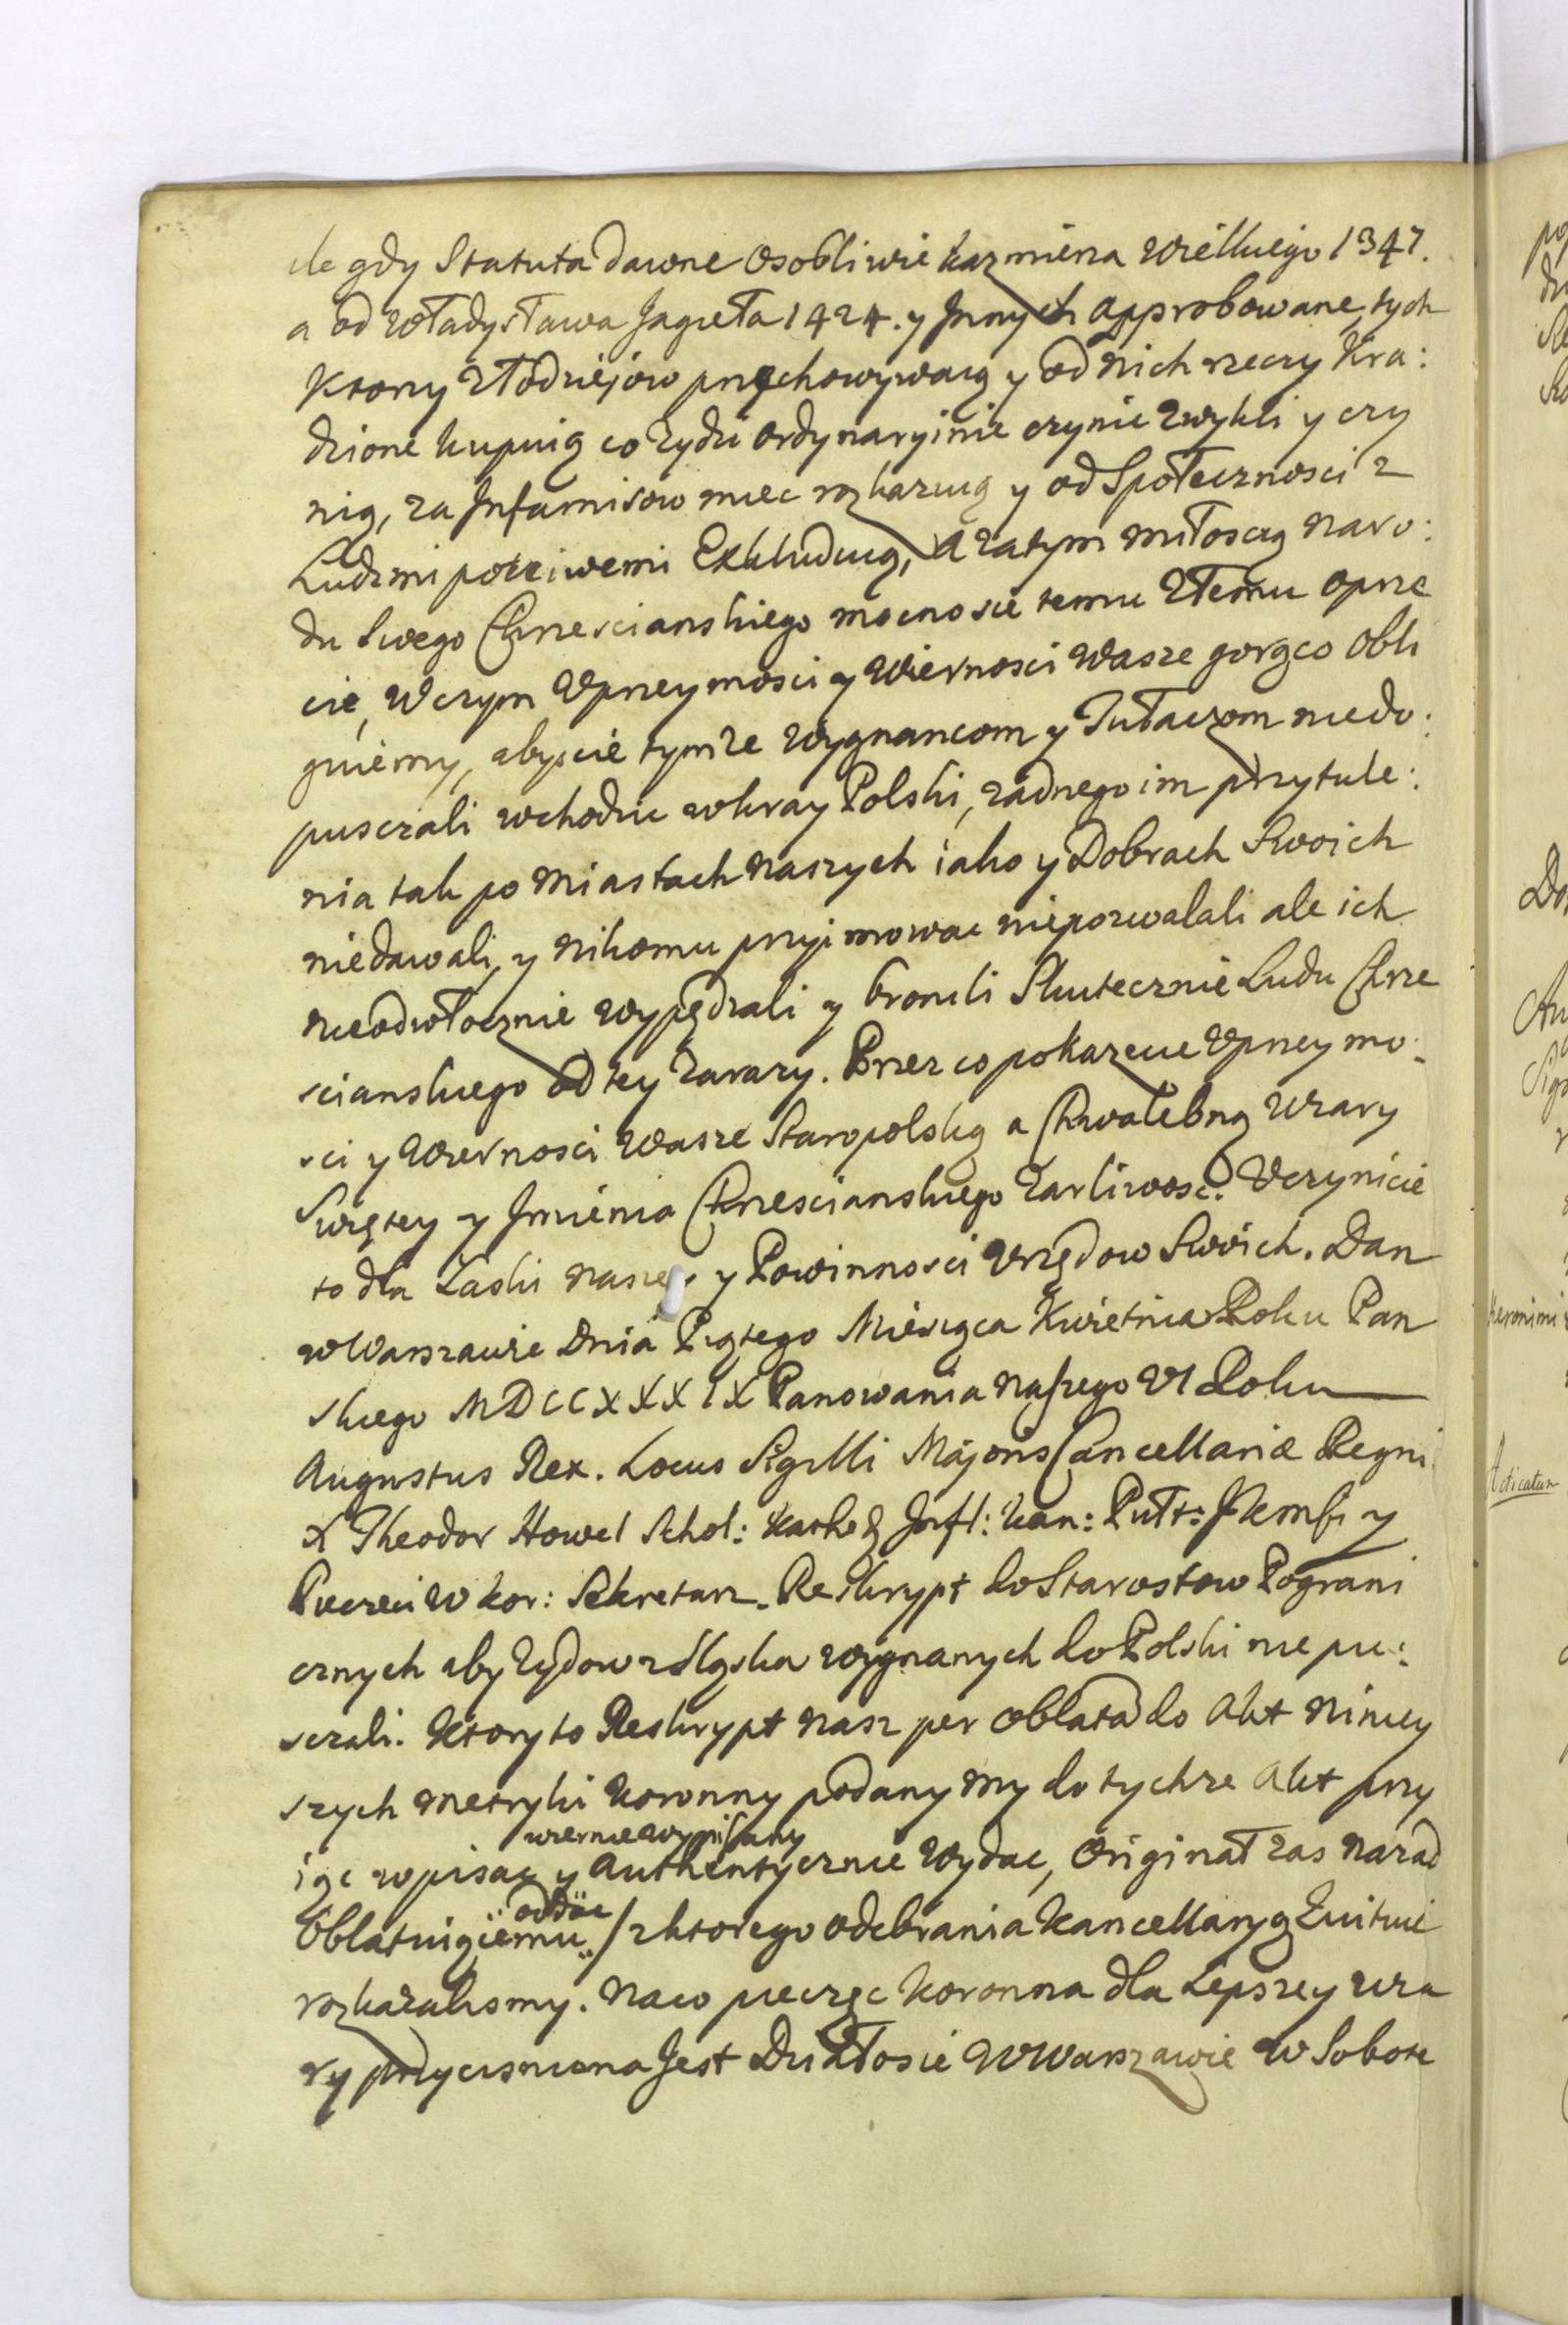 ile gdy Statuta dawne osobliwie kazmierza Wielkiego 1347.
a od Władysława Jagieła 1424. y Jnnych approbowane, tych
Ktorzy złodziejow przechowywaią y od nich rzeczy Kra:
dzione kupuią co zydzi ordynaryinie czynic zwykli y czy
nią, za Jnfamisow miec rozkazuią y od Społecznosci z
Ludzmi poćciwemi Exkluduią, A zatym miłoscią naro:
du Swego Chrzescianskiego mocno sie temu złemu oprze
cie, w czym Vprzeymosci y Wiernosci Wasze gorąco obli
guiemy, abyscie tymze wygnancom y Tułaczom niedo:
pusczali wchodzic w kray Polski, zadnego im przytule:
nia tak po Miastach Naszych iako y Dobrach Swoich
niedawali, y nikomu przyimowac niepozwalali ale ich
nieodwłocznie wypędzali y bronili Skutecznie Ludu Chrze
scianskiego od tey Zarazy. Przez co pokazecie Vprzeymo:
sci y Wiernosci Wasze Staropolską a Chwalebną Wiary
Swiętey y Jmienia Chrzescianskiego Zarliwosc. Vczynicie
to dla Łaski naszey y Powinnosci Vrzędow Swoich. Dan
w Warszawie Dnia Piątego Miesiąca Kwietnia Roku Pan
skiego MDCCXXXIX Panowania Naszego VI Roku
Augustus Rex. Locus Sigilli Majoris Cancellariæ Regni
X Theodor Howel Schol: Kated Jnfl: kan: Pułt: JKMsci y
Pieczęci W kor: Sekretarz. Reskrypt do Starostow Pograni
cznych aby Zydow z Sląska wygnanych do Polski nie pu:
sczali. Ktory to Reskrypt nasz per oblatam do Akt niniey
szych Metryki koronny podany my do tychze Akt przy
wiernie wypisany
iąc wpisac y authentycznie wydac, Originał zas nazad
oddac
Oblatuiącemu / z ktorego odebrania kancellaryą kwituie
rozkazalismy. Na co pieczęc koronna dla Lepszey wia
ry przycisniona Jest Działo sie w Warszawie w Sobote